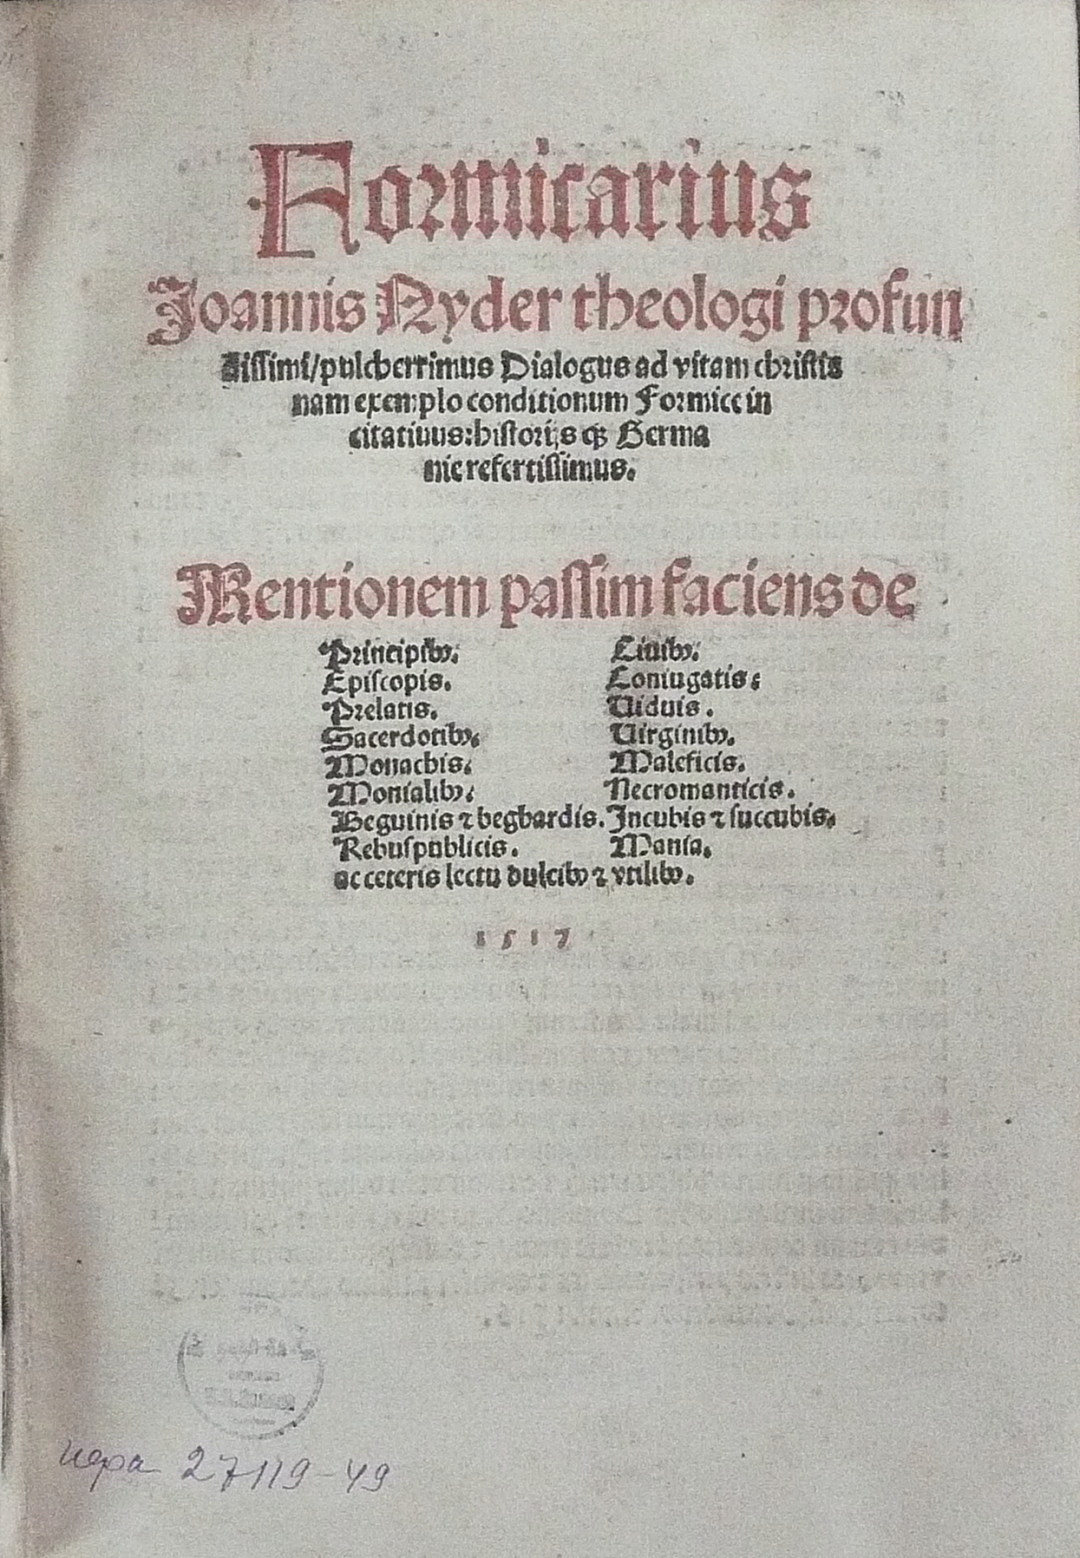 Formicarius
Joannis Nyder theologi profun
dissimi/pulcherrimus Dialogus ad vitam christia
nam exemplo conditionum Formice in
citatiuus: historijs qꝫ Germa
nie refertissimus.
Mentionem passim faciens de
Principibꝰ. Ciuibꝰ.
Episcopis. Coniugatis.
Prelatis. Viduis.
Sacerdotibꝰ. Virginibꝰ.
Monachis. Maleficis.
Monialibꝰ. Necromanticis.
Beguinis ⁊ beghardis. Incubis ⁊ succubis.
Rebuspublicis. Mania.
ac ceteris lectu dulcibꝰ ⁊ vtilibꝰ.
1517
27119-49